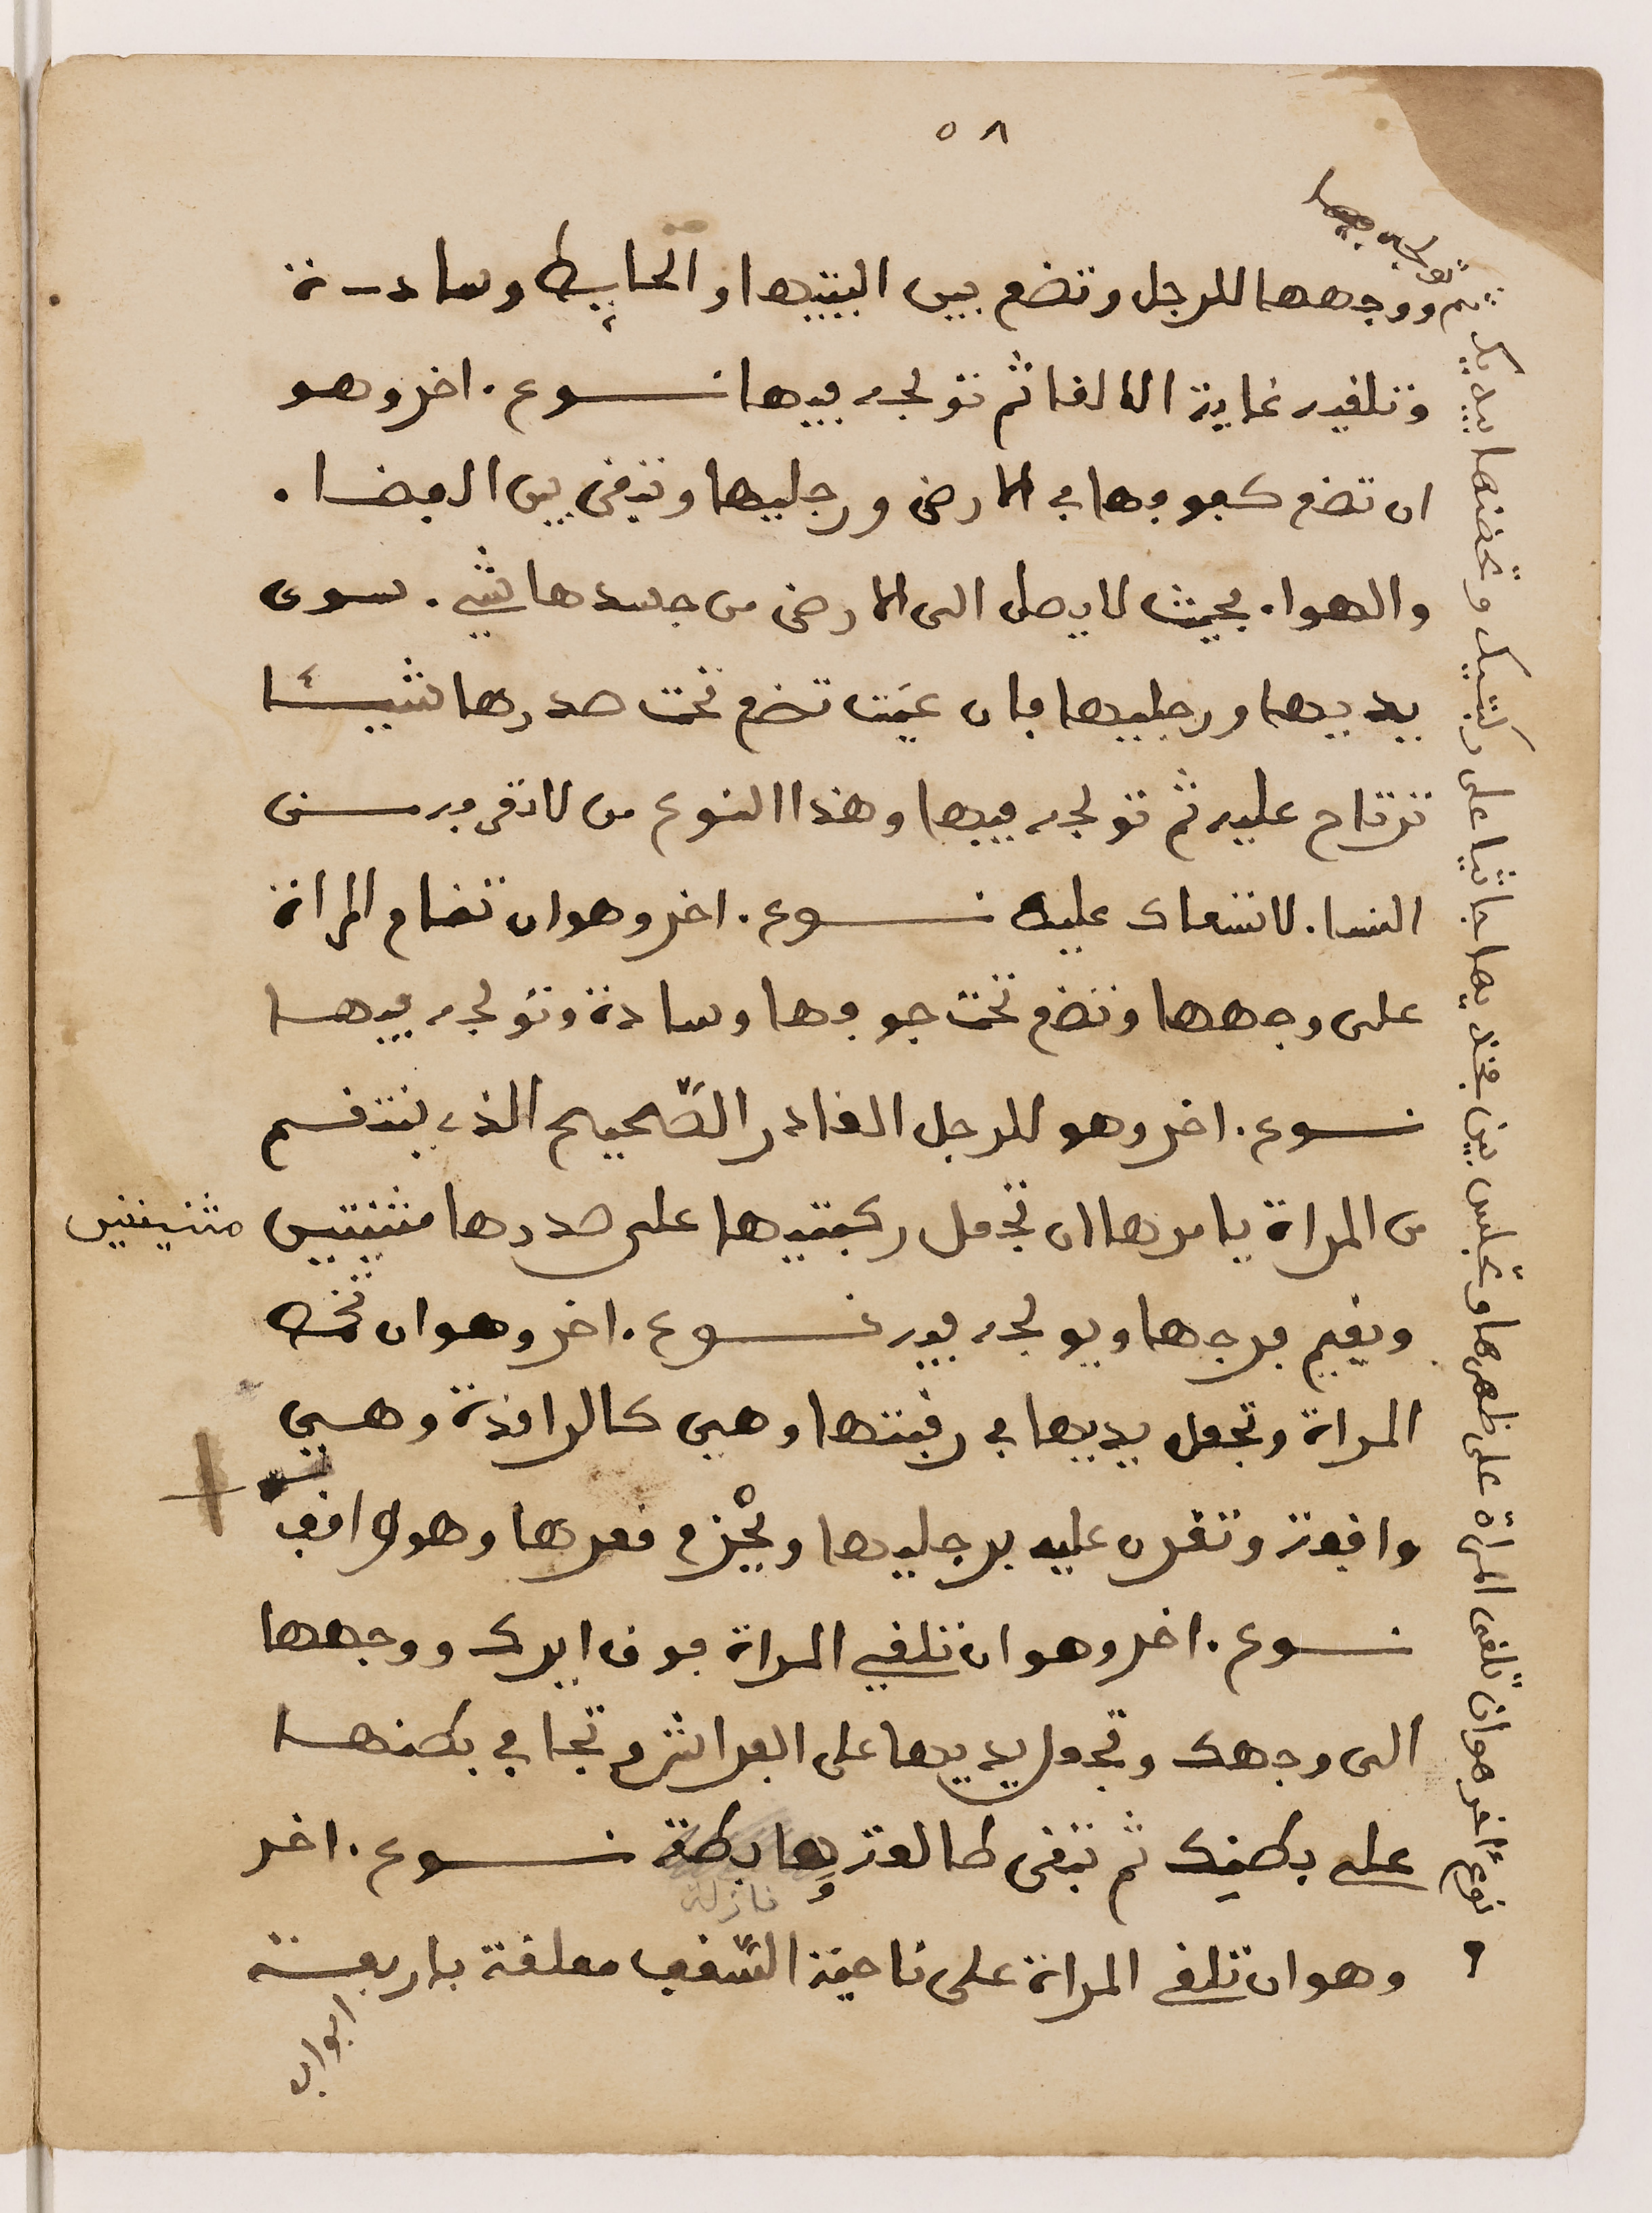 ٥٨
ووجهها للرجل وتضع بين اليتيها والحايط وسادة
وتلقيه غاية الالقا ثم تولجه فيها نوع. اخر وهو
ان تضع كفوفها في الارض ورجليها وتبقى بين الفضا.
والهوا. بحيث لا يصل الى الارض من جسدها شي. سوى
يديها ورجليها فان عيَت تضع تحت صدرها شيئًا
ترتاح عليه ثم تولجه فيها وهذا النوع من لا تعرفه من
النسا. لا تنعاك عليه نوع. اخر وهو ان تنام المراة
على وجهها وتضع تحت جوفها وسادة وتولجه فيها
نوع. اخر وهو للرجل القادر الصّحيح الذي ينتقم
من المراة يامرها ان تجعل ركبتيها على صدرها مثنيتين
مثنيتين
ويقيم فرجها ويولجه فيه نوع. اخر وهو ان تحته
المراة وتجعل يديها في رقبتها وهي كالراقدة وهي
واقفة وتقرن عليه برجليها ويحْزم قعرها وهو واقف
نوع. اخر وهو ان تلقي المراة فوق ايرك ووجهها
الى وجهك وتجعل يديها على الفراش وتجافي بطنها
على بطنك ثم تبقى طالعة وهابطة نوع. اخر
نازلة
وهو ان تلقي المراة على ناحية السّقف معلقة باربعة
ابواب
نوع آخر هو ان تلقى المراة على ظهرها وتجلس بين فخذيها جاثيا على ركبتيك وتحضنها بيديك ثم تولجه فيها